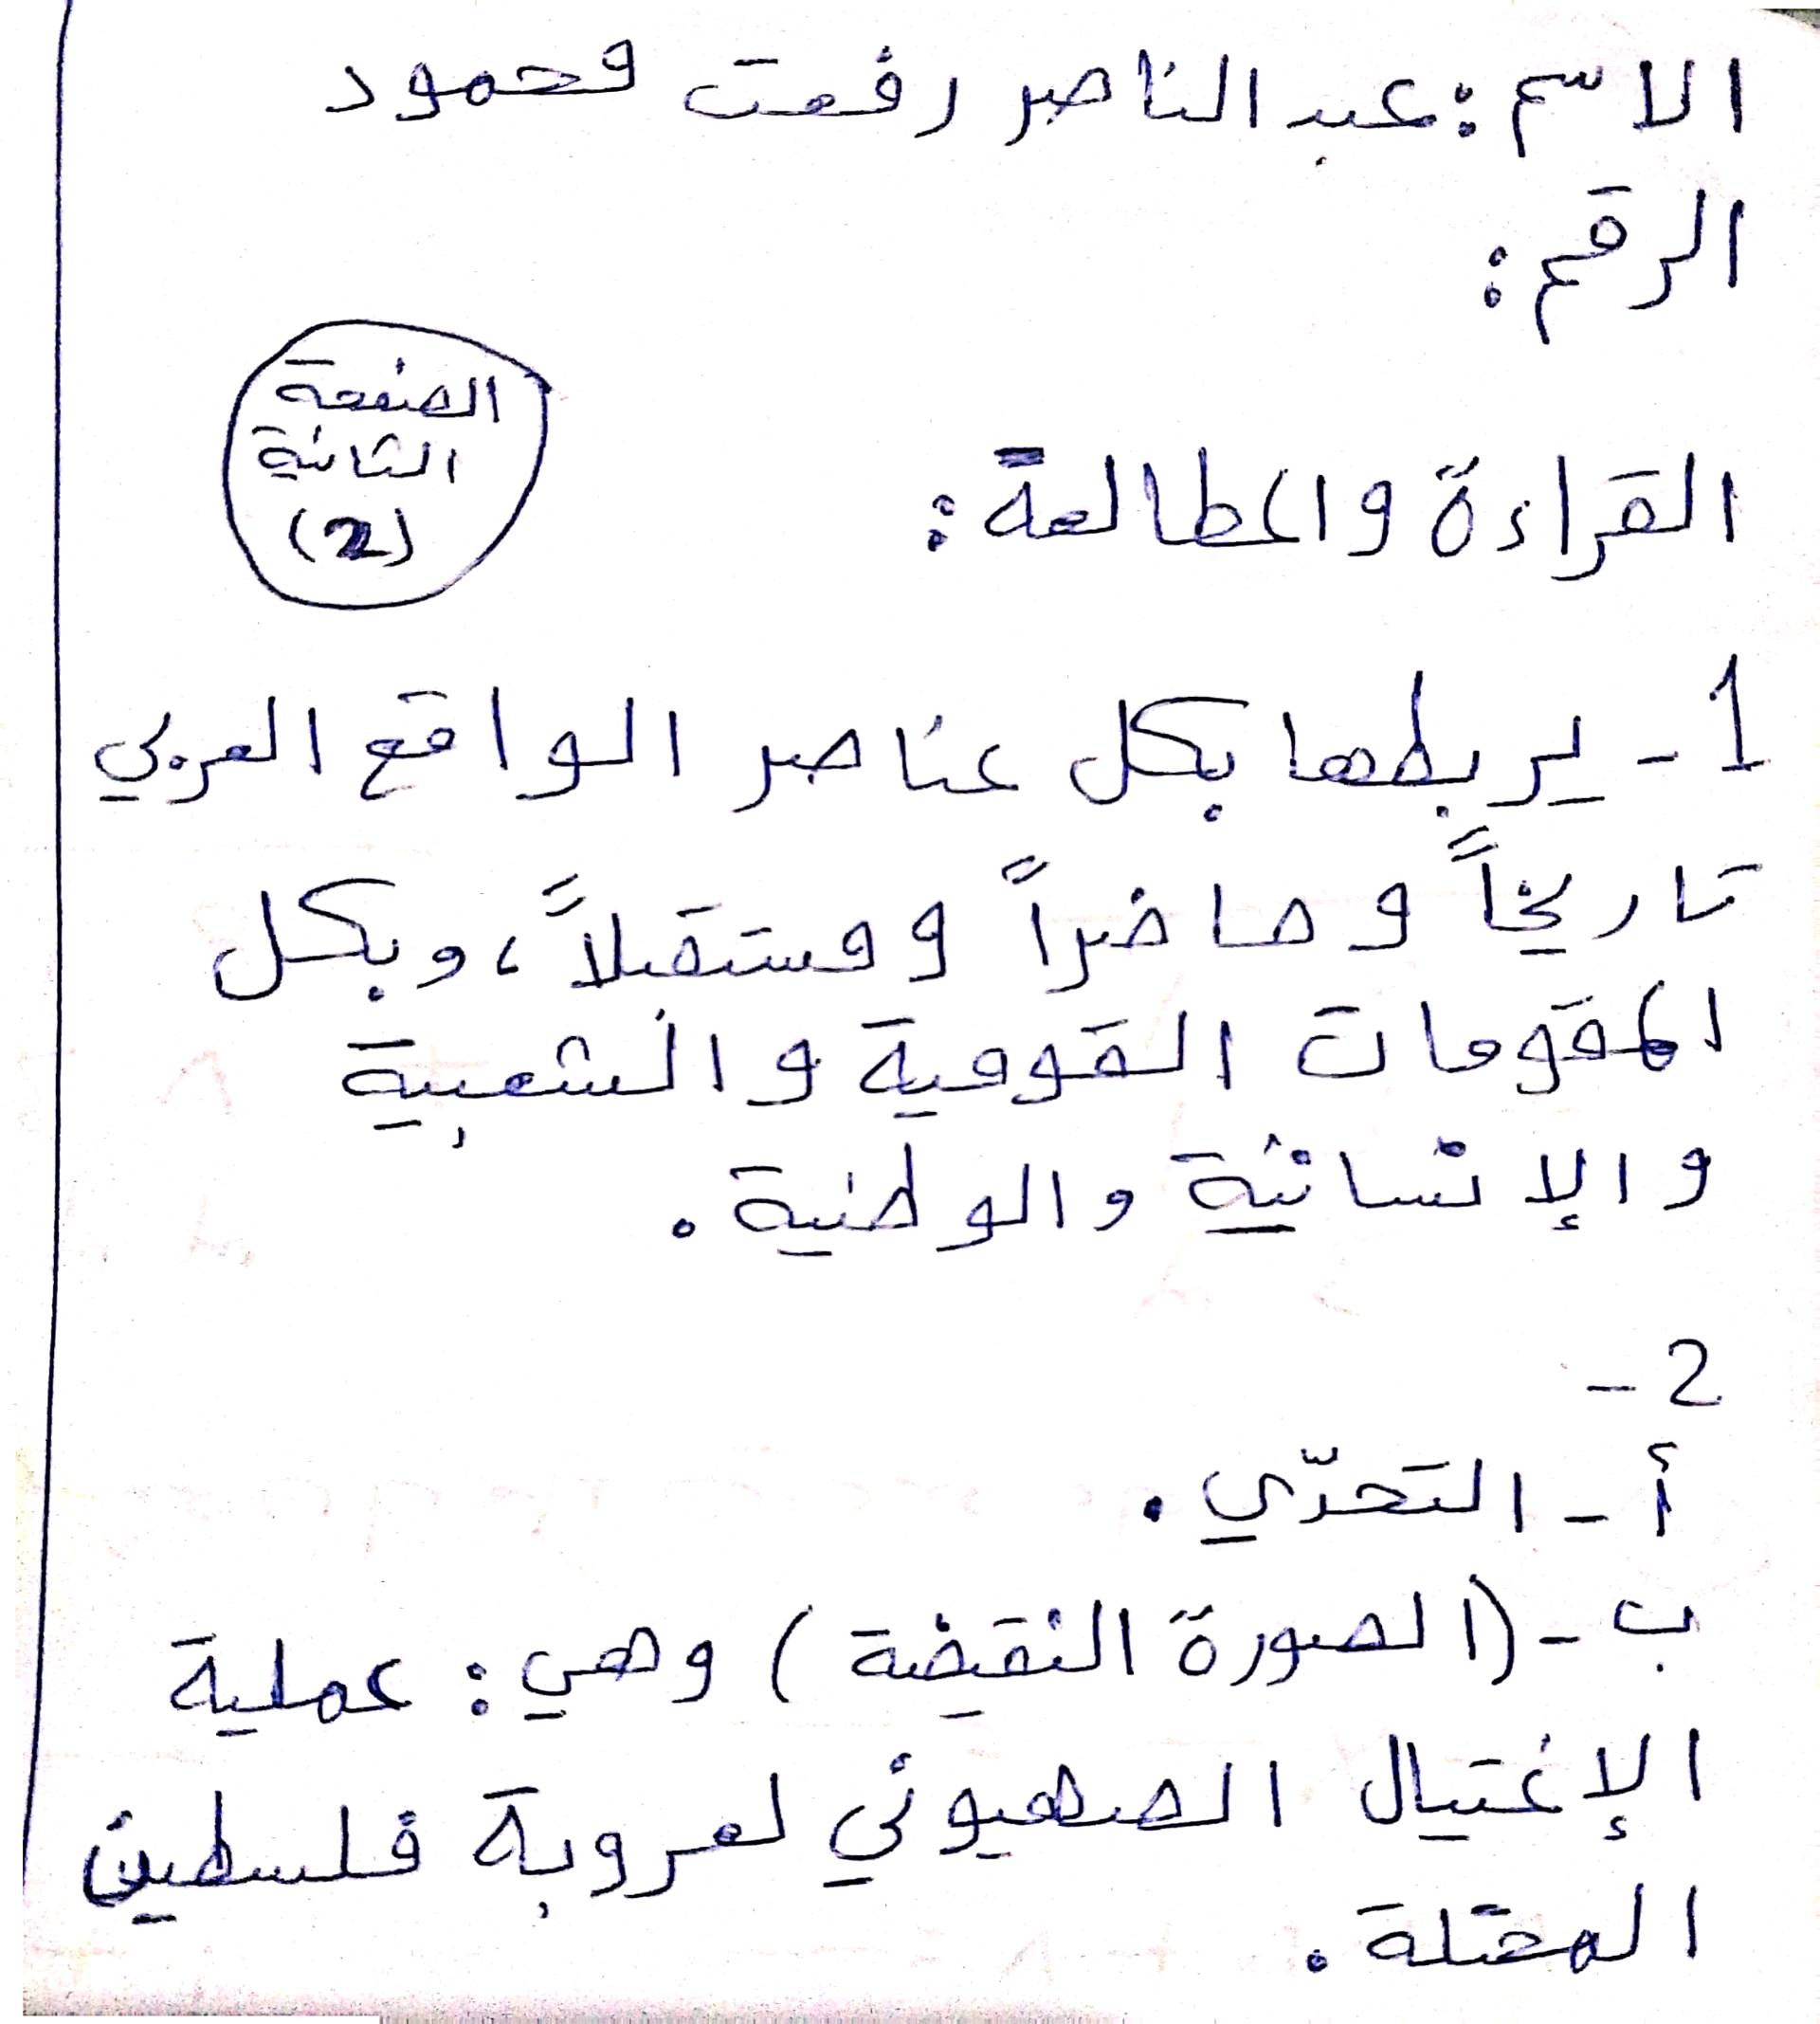 الاسم: عبد الناصر رفعت محمود
الرقم:
الصفحة
الثانية
(2)
القراءة والمطالعة:
1- يربطها بكل عناصر الواقع العربي
تاريخاً وحاضراً ومستقبلاً، وبكل
المقومات القومية والشعبية
والإنسانية والوطنية.
2-
أ- التحدّي.
ب- (الصورة النقيضة) وهي: عملية
الإغتيال الصهيوني لعروبة فلسطين
المحتلة.